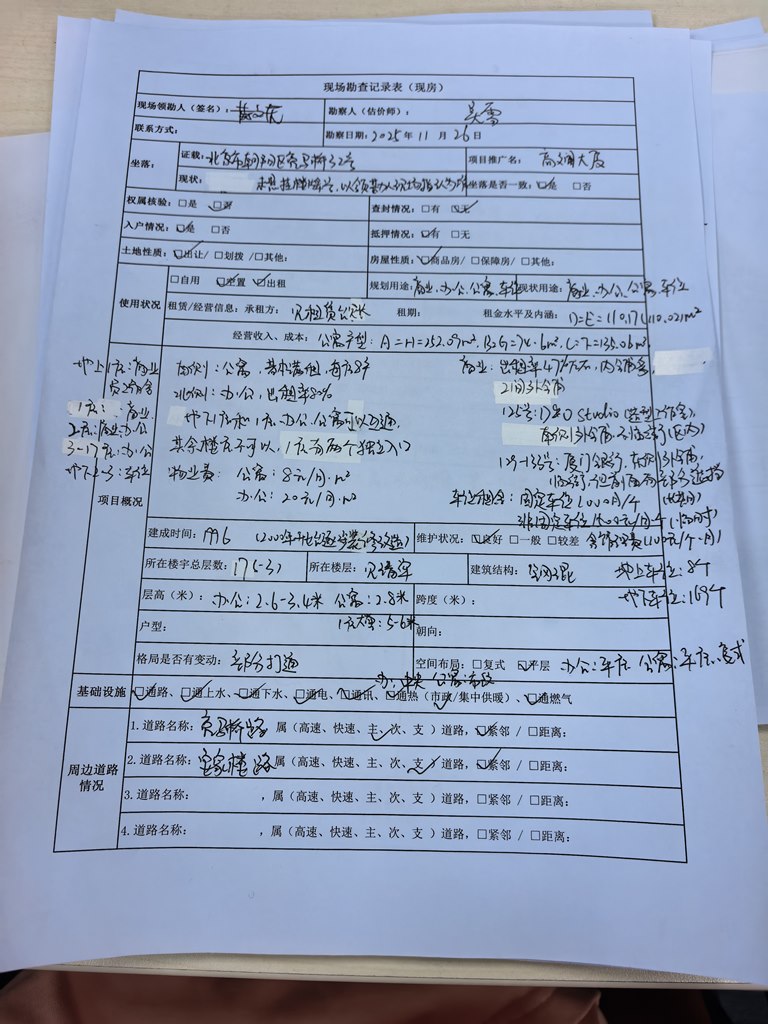 现场勘查记录表（现房）
现场领勘人（签名）： 勘察人（估价师）：吴雷
联系方式： 勘察日期：2025年11月26日
坐落： 证载：北京市朝阳区亮马桥32号 项目推广名：高斓大厦
现状： 未悬挂楼牌号，以领勘人现场指认为准 坐落是否一致：☑是 □否
权属核验：□是 ☑否 查封情况：□有 ☑无
入户情况：☑是 □否 抵押情况：☑有 □无
土地性质：☑出让/□划拨/□其他： 房屋性质：☑商品房/□保障房/□其他：
使用状况 □自用 ☑空置 ☑出租 规划用途：商业、办公、公寓、车位 现状用途：商业、办公、公寓、车位
租赁/经营信息：承租方：见租赁台账 租期： 租金水平及内涵：D=E=110.17(110.02)m²
经营收入、成本：公寓户型：A=H=252.09m²，B=G=74.6m²，C=F=135.06m²
地上1层：商业
1层：商业
2层：商业、办公
3-17层：办公
地下2-3：车位
项目概况
南侧：公寓，基本满租，每层8户
北侧：办公，出租率80%
地下1层和1层，办公、公寓可以互通
其余楼层不可以，1层有两个独立入口
物业费：公寓：8元/月·m²
办公：20元/月·m²
商业：出租率47%左右，内舍商舍，
2间外舍商
125号：D和O Studio（造型工作室）
129-135号：厦门银行，东侧外舍商，
车位租金：固定车位1000元/月·个
非固定车位1500元/月·个（临时）
含管理费(100元/个·月)
建成时间：1996 维护状况：☑良好 □一般 □较差
所在楼宇总层数：17(-3) 所在楼层：见清单 建筑结构：钢混 地上车位：8个
层高（米）：办公：2.6-3.4米 公寓：2.8米 跨度（米）： 地下车位：169个
1层大堂：5-6米
户型： 朝向：
格局是否有变动：部分打通 空间布局：□复式 ☑平层 办公：平层 公寓：平层、复式
办：中央 公寓：市政
基础设施 ☑通路、☑通上水、☑通下水、☑通电、☑通讯、☑通热（市政/集中供暖）、☑通燃气
周边道路情况
1.道路名称：亮马桥路 属（高速、快速、主、次、支）道路，☑紧邻 / □距离：
2.道路名称：安家楼路 属（高速、快速、主、次、支）道路，☑紧邻 / □距离：
3.道路名称： ，属（高速、快速、主、次、支）道路，□紧邻 / □距离：
4.道路名称： ，属（高速、快速、主、次、支）道路，□紧邻 / □距离：